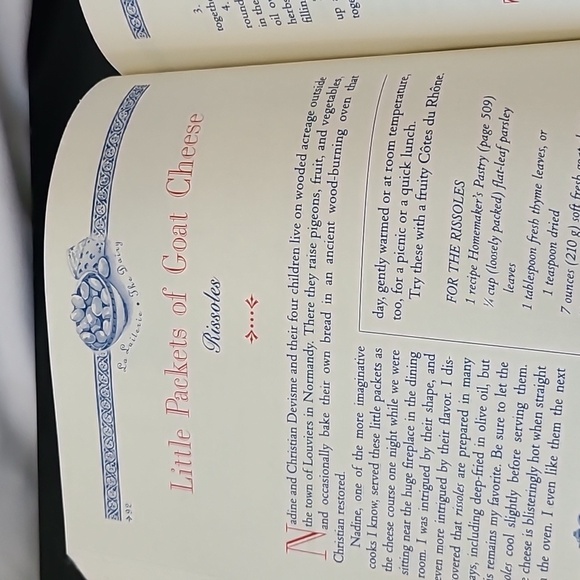 392
La Laiterie • The Dairy
Little Packets of Goat Cheese
Rissoles
Nadine and Christian Devisme and their four children live on wooded acreage outside
the town of Louviers in Normandy. There they raise pigeons, fruit, and vegetables
and occasionally bake their own bread in an ancient wood-burning oven that
Christian restored.
Nadine, one of the more imaginative
cooks I know, served these little packets as
the cheese course one night while we were
sitting near the huge fireplace in the dining
room. I was intrigued by their shape, and
even more intrigued by their flavor. I dis-
overed that risoles are prepared in many
ays, including deep-fried in olive oil, but
is remains my favorite. Be sure to let the
les cool slightly before serving them.
cheese is blisteringly hot when straight
the oven. I even like them the next
day, gently warmed or at room temperature,
too, for a picnic or a quick lunch.
Try these with a fruity Côtes du Rhône.
FOR THE RISSOLES
1 recipe Homemaker's Pastry (page 509)
¼ cup (loosely packed) flat-leaf parsley
leaves
1 tablespoon fresh thyme leaves, or
1 teaspoon dried
7 ounces (210 g) soft fresh
3.
togeth
4.
round
in the
oil o
herbs
fillin
up
tog